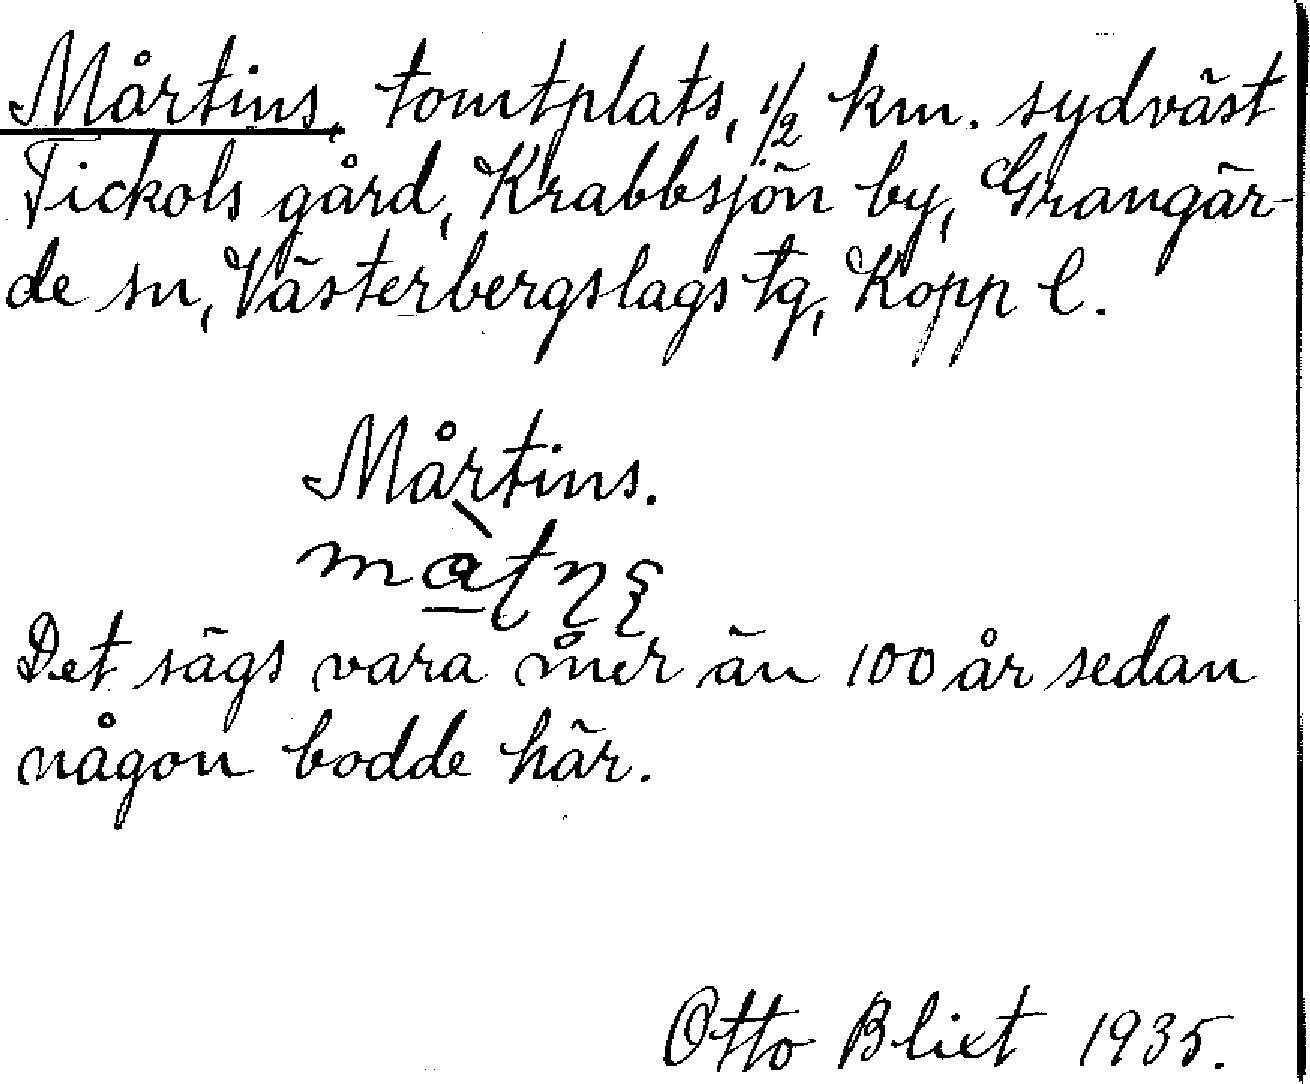 Mårtins, tomtplats, 1/2 km. sydväst
Tickols gård, Krabbsjön by, Grangär-
de sn, Västerbergslags tg, Kopp l.
Mårtins.
Det sägs vara mer än 100 år sedan
någon bodde här.
Otto Blixt 1935.